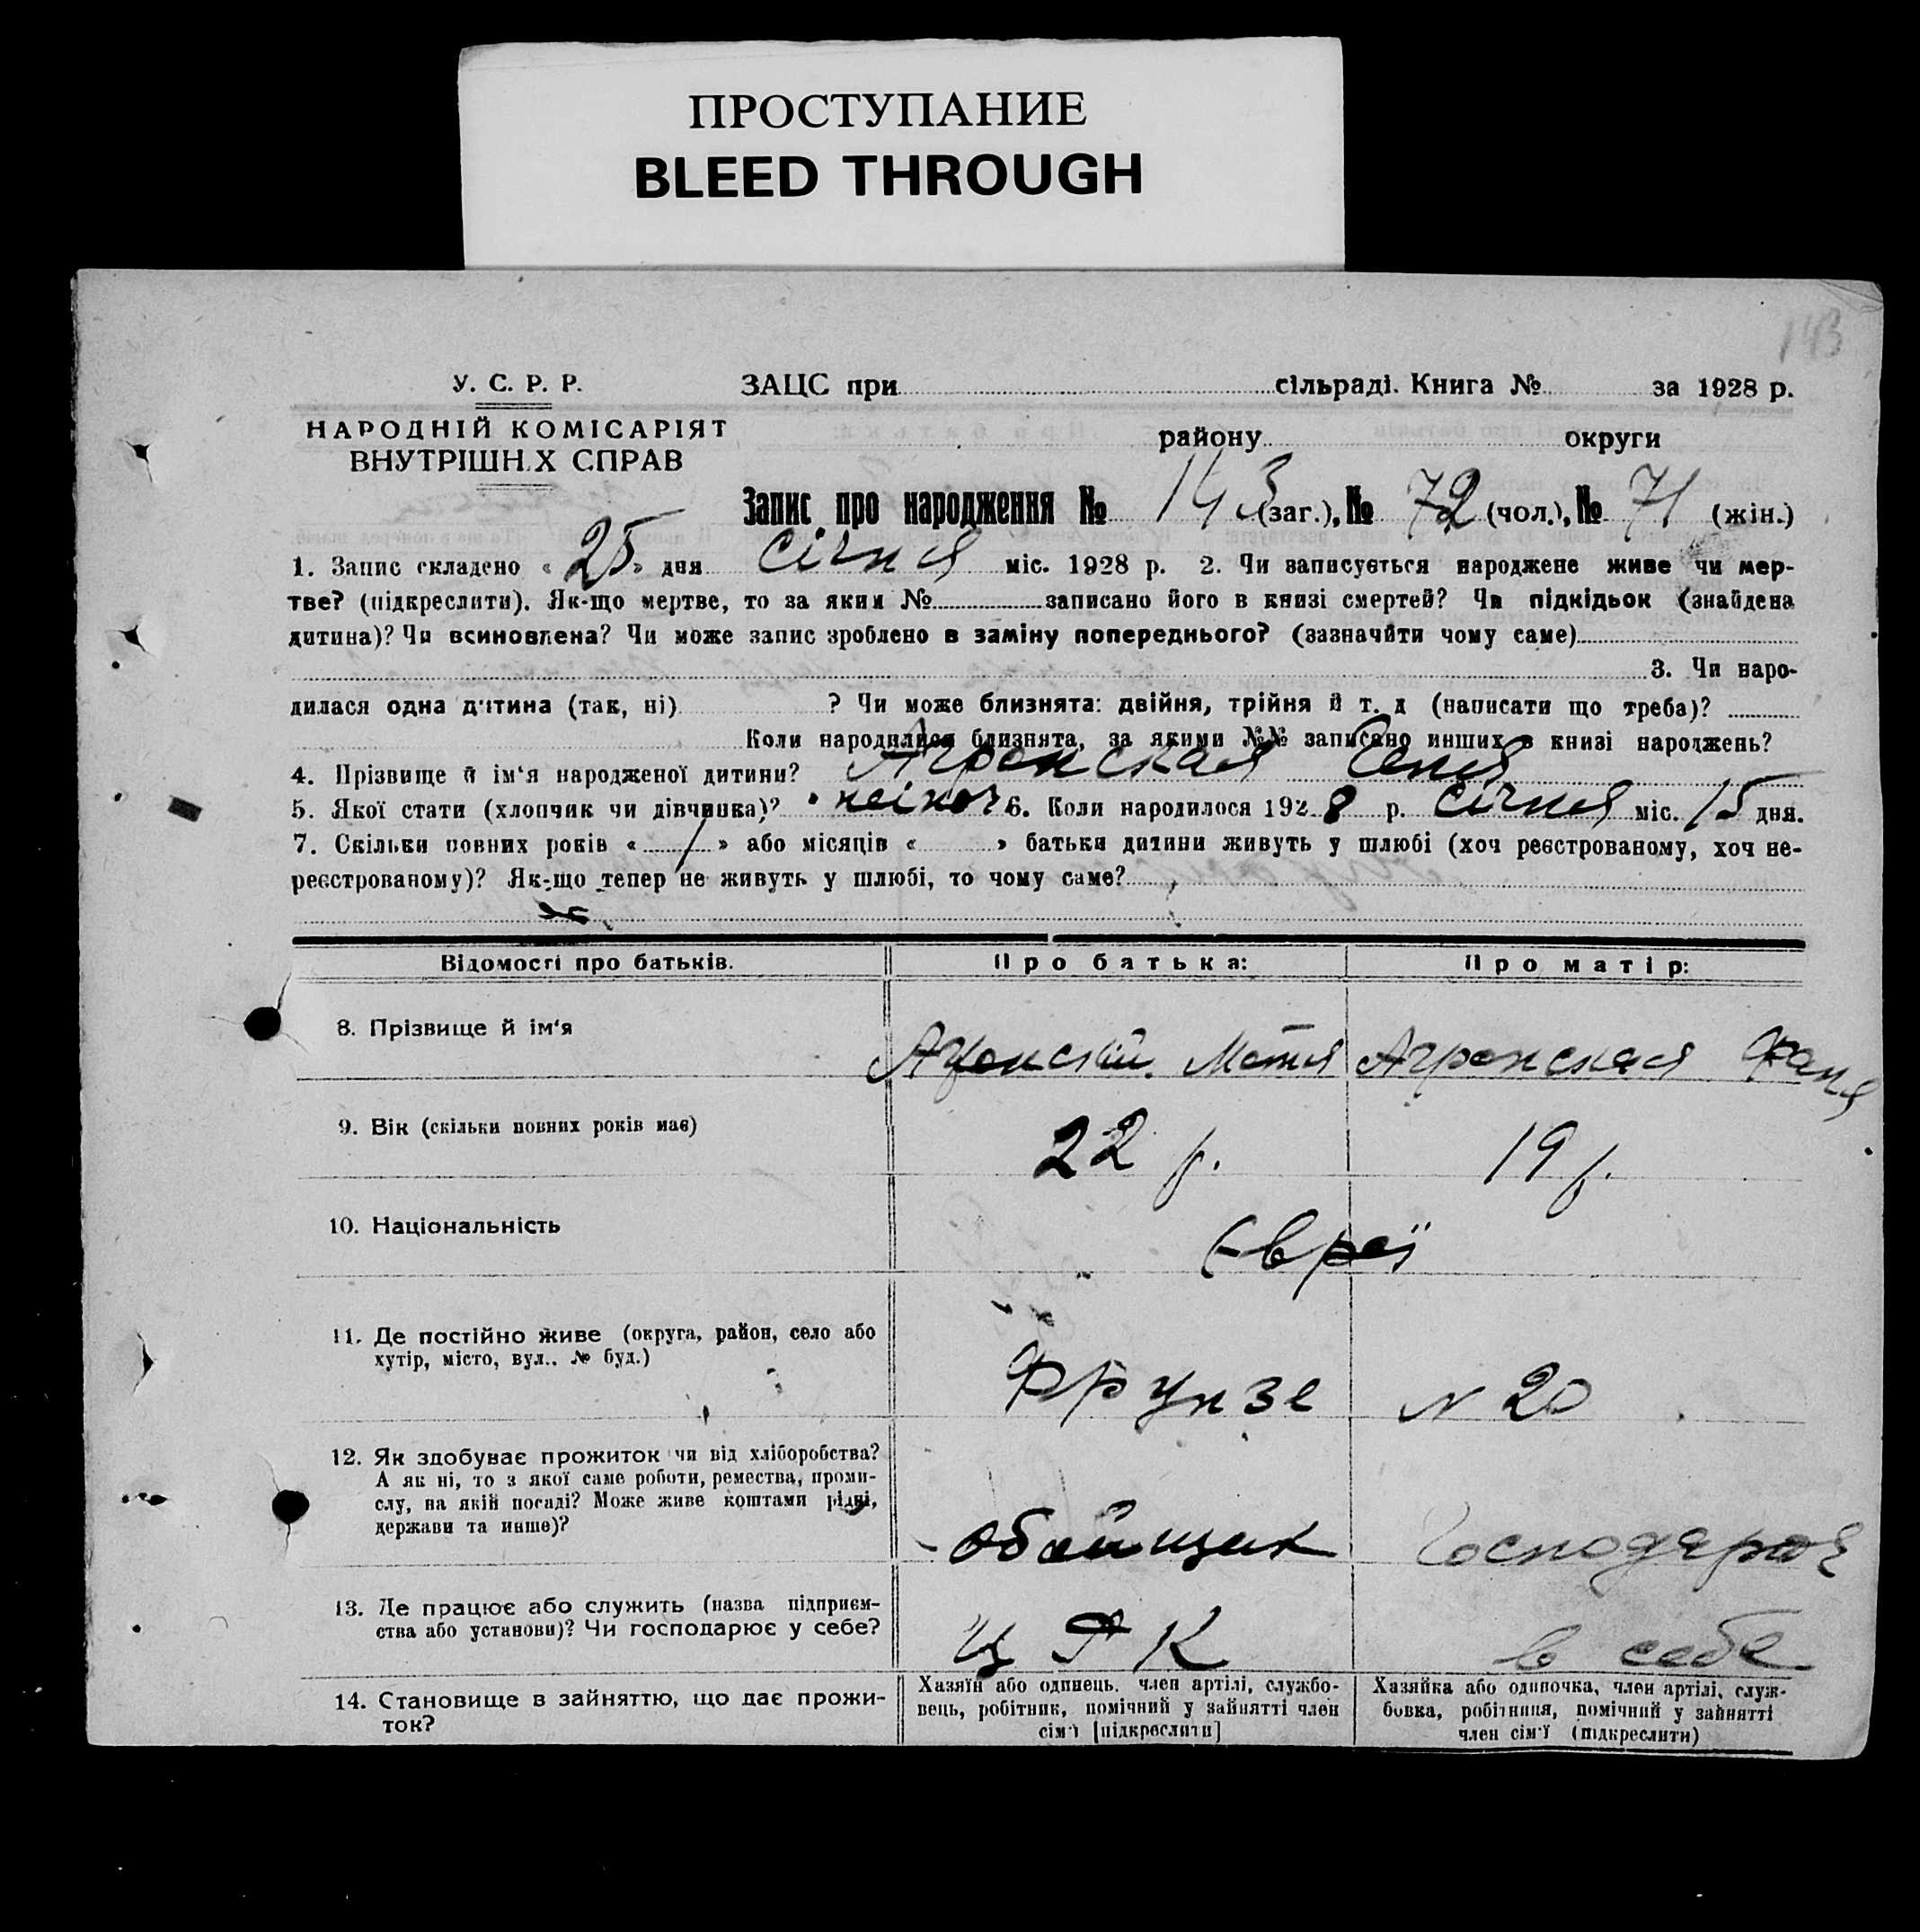 ПРОСТУПАНИЕ
BLEED THROUGH
143
У. С. Р. Р.
НАРОДНІЙ КОМІСАРІЯТ
ВНУТРІШНІХ СПРАВ
ЗАЦС при сільраді. Книга № за 1928 р.
району округи
Запис про народження № 143 (заг.), № 72 (чол.), № 71 (жін.)
1. Запис складено « 25 » дня січня міс. 1928 р. 2. Чи записується народжене живе чи мер-
тве? (підкреслити). Як-що мертве, то за яким № записано його в книзі смертей? Чи підкідьок (знайдена
дитина)? Чи всиновлена? Чи може запис зроблено в заміну попереднього? (зазначити чому саме)
3. Чи наро-
дилася одна дитина (так, ні) ? Чи може близнята: двійня, трійня й т. д (написати що треба)?
Коли народилися близнята, за якими №№ записано инших в книзі народжень?
4. Прізвище й ім‘я народженої дитини? Агронская
5. Якої стати (хлопчик чи дівчинка)? жіноч 6. Коли народилося 1928 р. січня міс. 15 дня.
7. Скільки повних років « 1 » або місяців « » батьки дитини живуть у шлюбі (хоч реєстрованому, хоч не-
реєстрованому)? Як-що тепер не живуть у шлюбі, то чому саме?
Відомості про батьків. Про батька: Про матір:
8. Прізвище й ім‘я Агронский Мотя Агронская Фаня
9. Вік (скільки повних років має) 22 р. 19 р.
10. Національність Євреї
11. Де постійно живе (округа, район, село або
хутір, місто, вул., № буд.)
Фрунзе N 20
12. Як здобуває прожиток чи від хліборобства?
А як ні, то з якої саме роботи, ремества, проми-
слу, на якій посаді? Може живе коштами рідні,
держави та инше)?
обойщик господарює
13. Де працює або служить (назва підприєм-
ства або установи)? Чи господарює у себе?
ЦРК в себе
14. Становище в зайняттю, що дає прожи-
ток?
Хазяїн або одинець, член артілі, службо-
вець, робітник, помічний у зайнятті член
сім‘ї [підкреслити]
Хазяйка або одиночка, член артілі, служ-
бовка, робітниця, помічний у зайнятті
член сім‘ї (підкреслити)